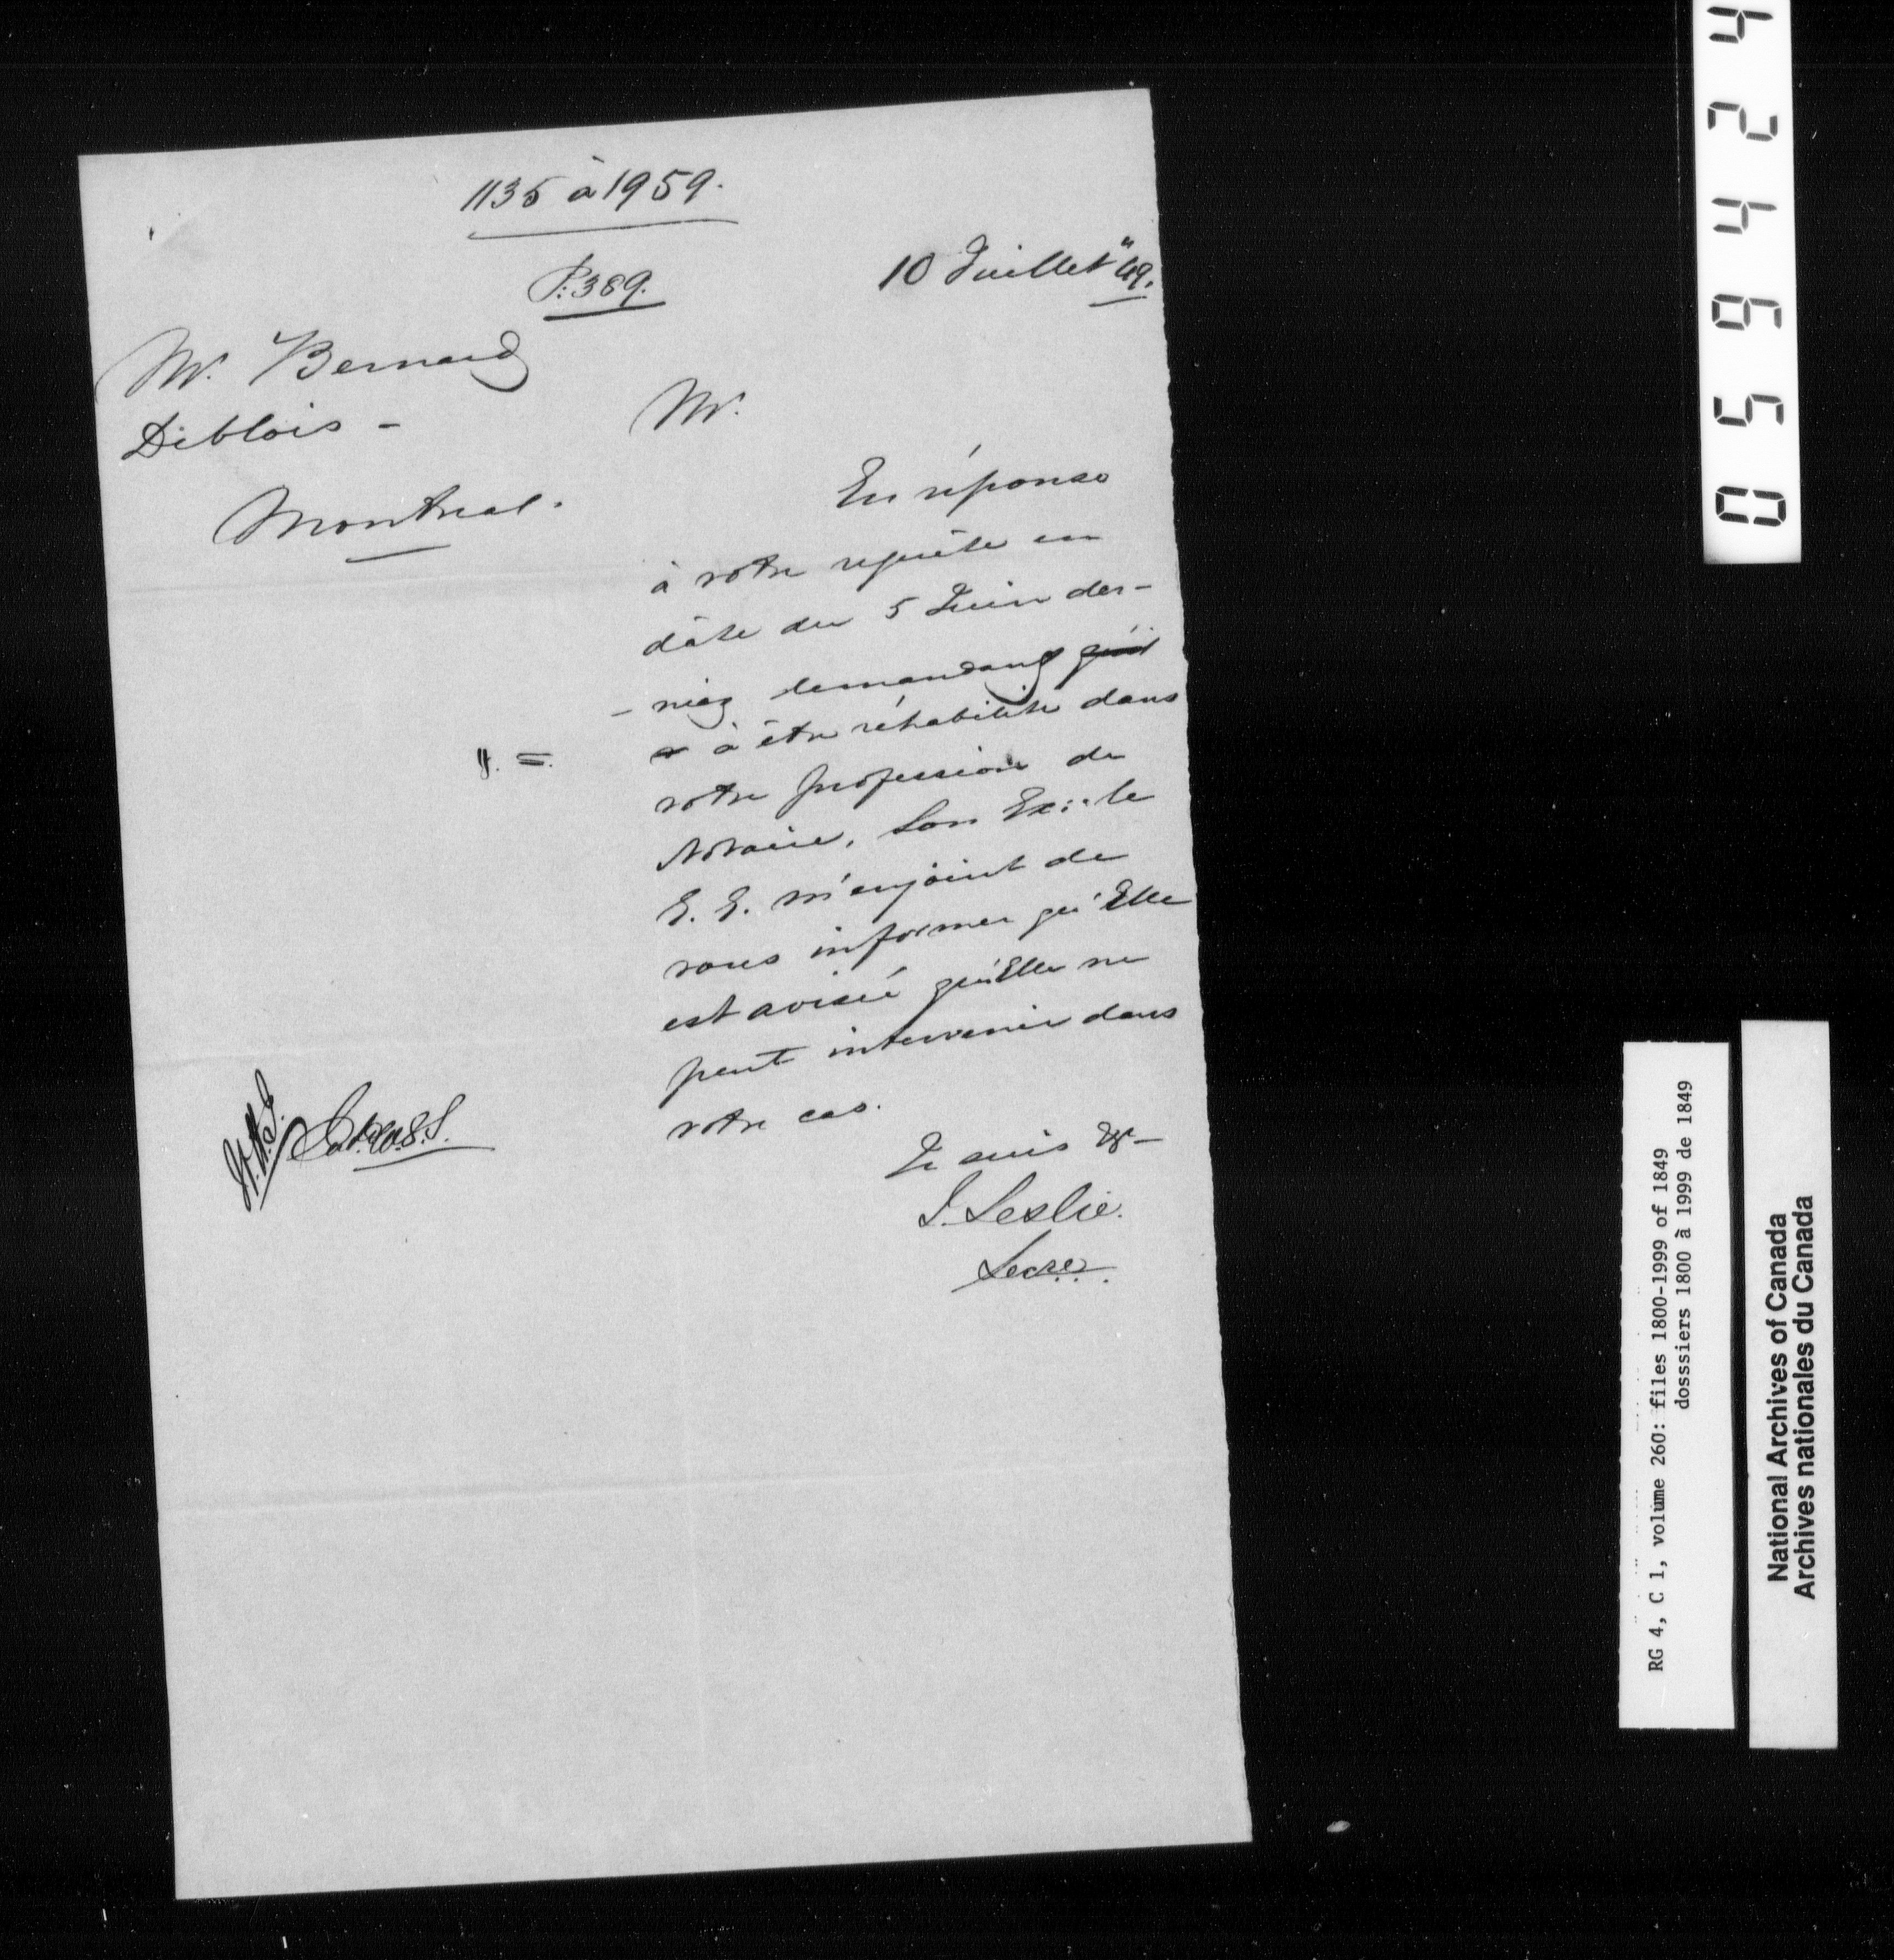 1135 à 1959.
P: 389.
10 Juillet "49.
Mr. Bernard
Déblois -
Montreal.
Mr.
En réponse
à votre requête en
dâte du 5 Juin der-
- nier demandant qu'il
à être réhabilité dans
votre profession de
Notaire, Son Ex: le
G. G. m'enjoint de
vous informer qu'Elle
est avisée qu'Elle ne
peut intervenir dans
votre cas.
Je suis &c -
J. Leslie.
Secre.
RG 4, C 1, volume 260: files 1800-1999 of 1849
dosssiers 1800 à 1999 de 1849
National Archives of Canada
Archives nationales du Canada
0 5 6 4 2 4